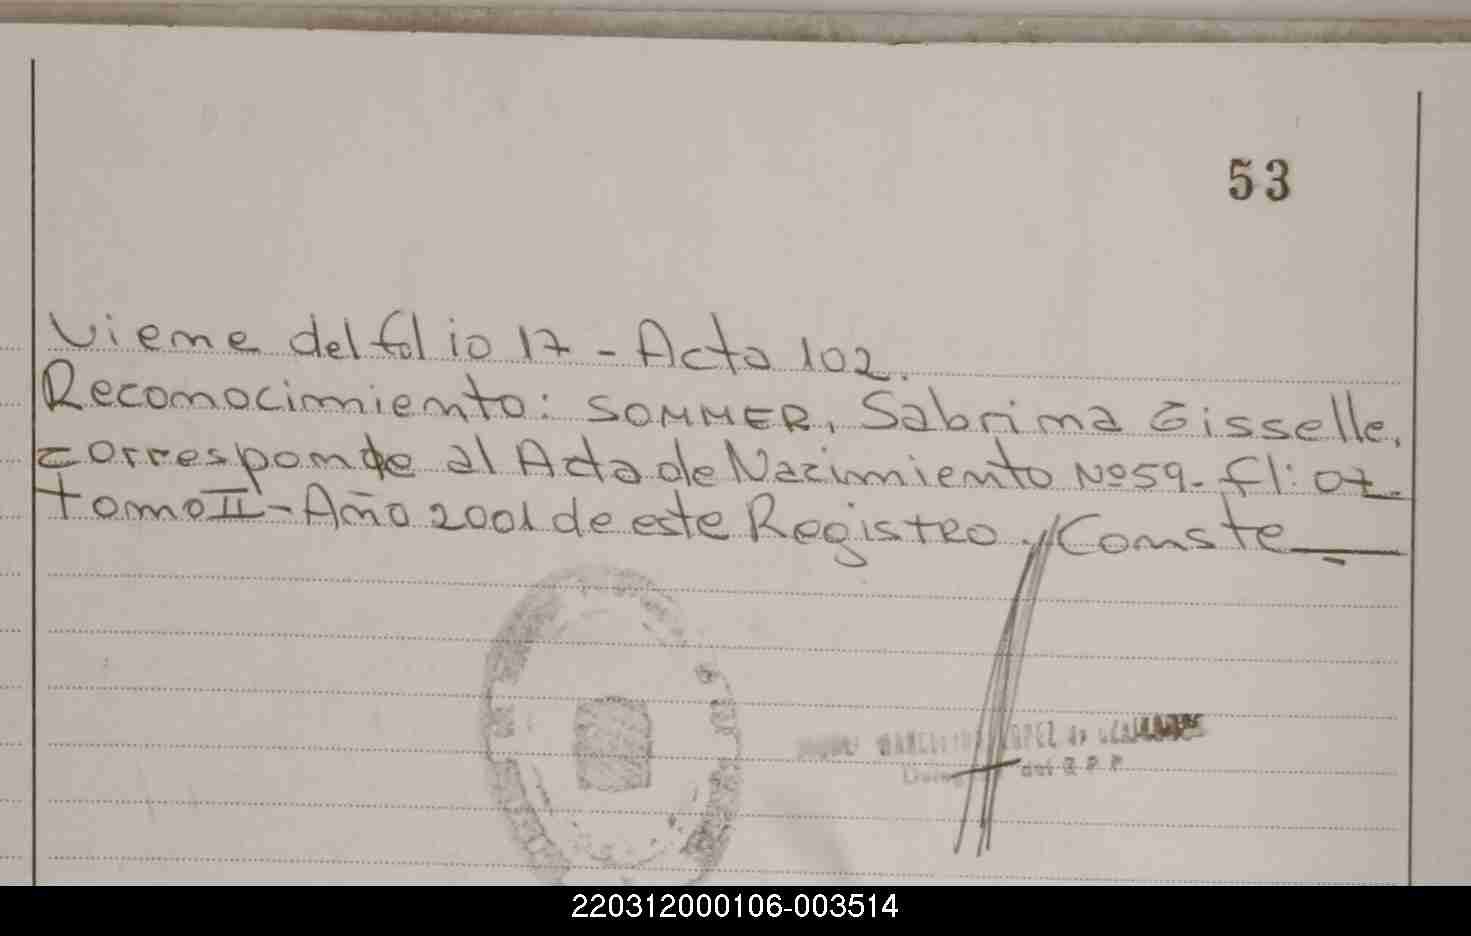 53
Viene del folio 17 - Acta 102.
Reconocimiento: SOMMER, Sabrina Gisselle,
corresponde al Acta de Nacimiento Nº 59 - fl: 07 -
tomo II - Año 2001 de este Registro. // Conste
LOPEZ de
del
220312000106-003514